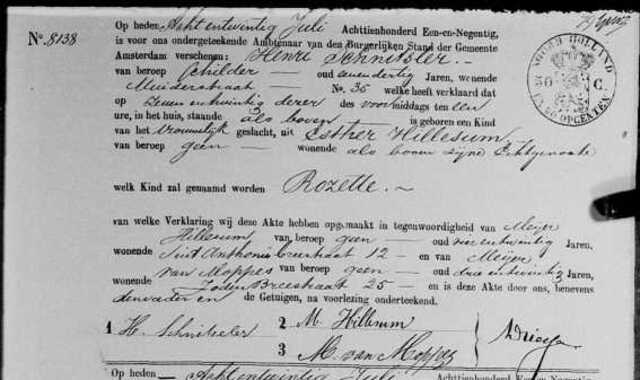 No. 8138
Op heden Acht entwintig Juli Achttienhonderd Een-en-Negentig,
is voor ons ondergeteekende Ambtenaar van den Burgerlijken Stand der Gemeente
Amsterdam verschenen: Henri Schnitzler
van beroep Schilder oud eenendertig Jaren, wonende
Muiderstraat No. 36 welke heeft verklaard dat
op zevenentwintig dezer des voormiddags ten een
ure, in het huis, staande als boven is geboren een Kind
van het vrouwelijk geslacht, uit Esther Hillesum
van beroep geen wonende als boven zijne Echtgenoote
welk Kind zal genaamd worden Rozette.
van welke Verklaring wij deze Akte hebben opgemaakt in tegenwoordigheid van Meijer
Hillesum van beroep geen oud vierentwintig Jaren,
wonende Sint Anthonie breestraat 12 en van Meijer
van Moppes van beroep geen oud drie entwintig Jaren,
wonende Joden Breestraat 25 en is deze Akte door ons, benevens
den vader en de Getuigen, na voorlezing onderteekend.
1 H. Schnitzler 2 M. Hillesum
3 M. van Moppes
Op heden Acht entwintig Juli Achttienhonderd Een-en-Negentig,
NOORD HOLLAND
50 C.
EN 50 OPCENTEN